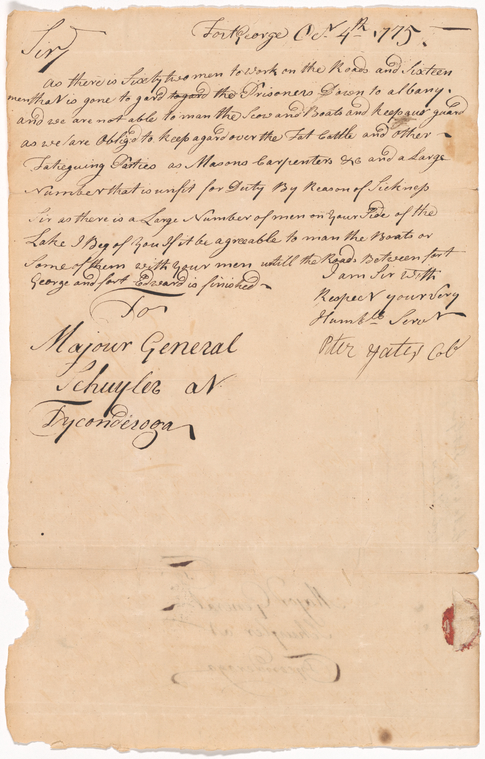 Fort George Oct 4th 1775.
Sir
As there is Sixty two men to work on the Roads and Sixteen
men that is gone to gard to gard the Prisoners Down to albany.
and we are not able to man the Scows and Boats and keep our guard
as we are Obligd to keep a gard over the Fat Cattle and other
Fateguing Parties as Masons Carpenters &c and a Large
Number that is unfit for Duty By Reason of Sickness
Sir as there is a Large Number of men on Your Side of the
Lake I Beg of You If it be agreable to man the Boats or
Some of them with Your men untill the Roads Between fort
George and fort Edward is finished
I am Sir with
Respect your Very
Humble Servt
Peter Yates Col
To
Majour General
Schuyler at
Tyconderoga